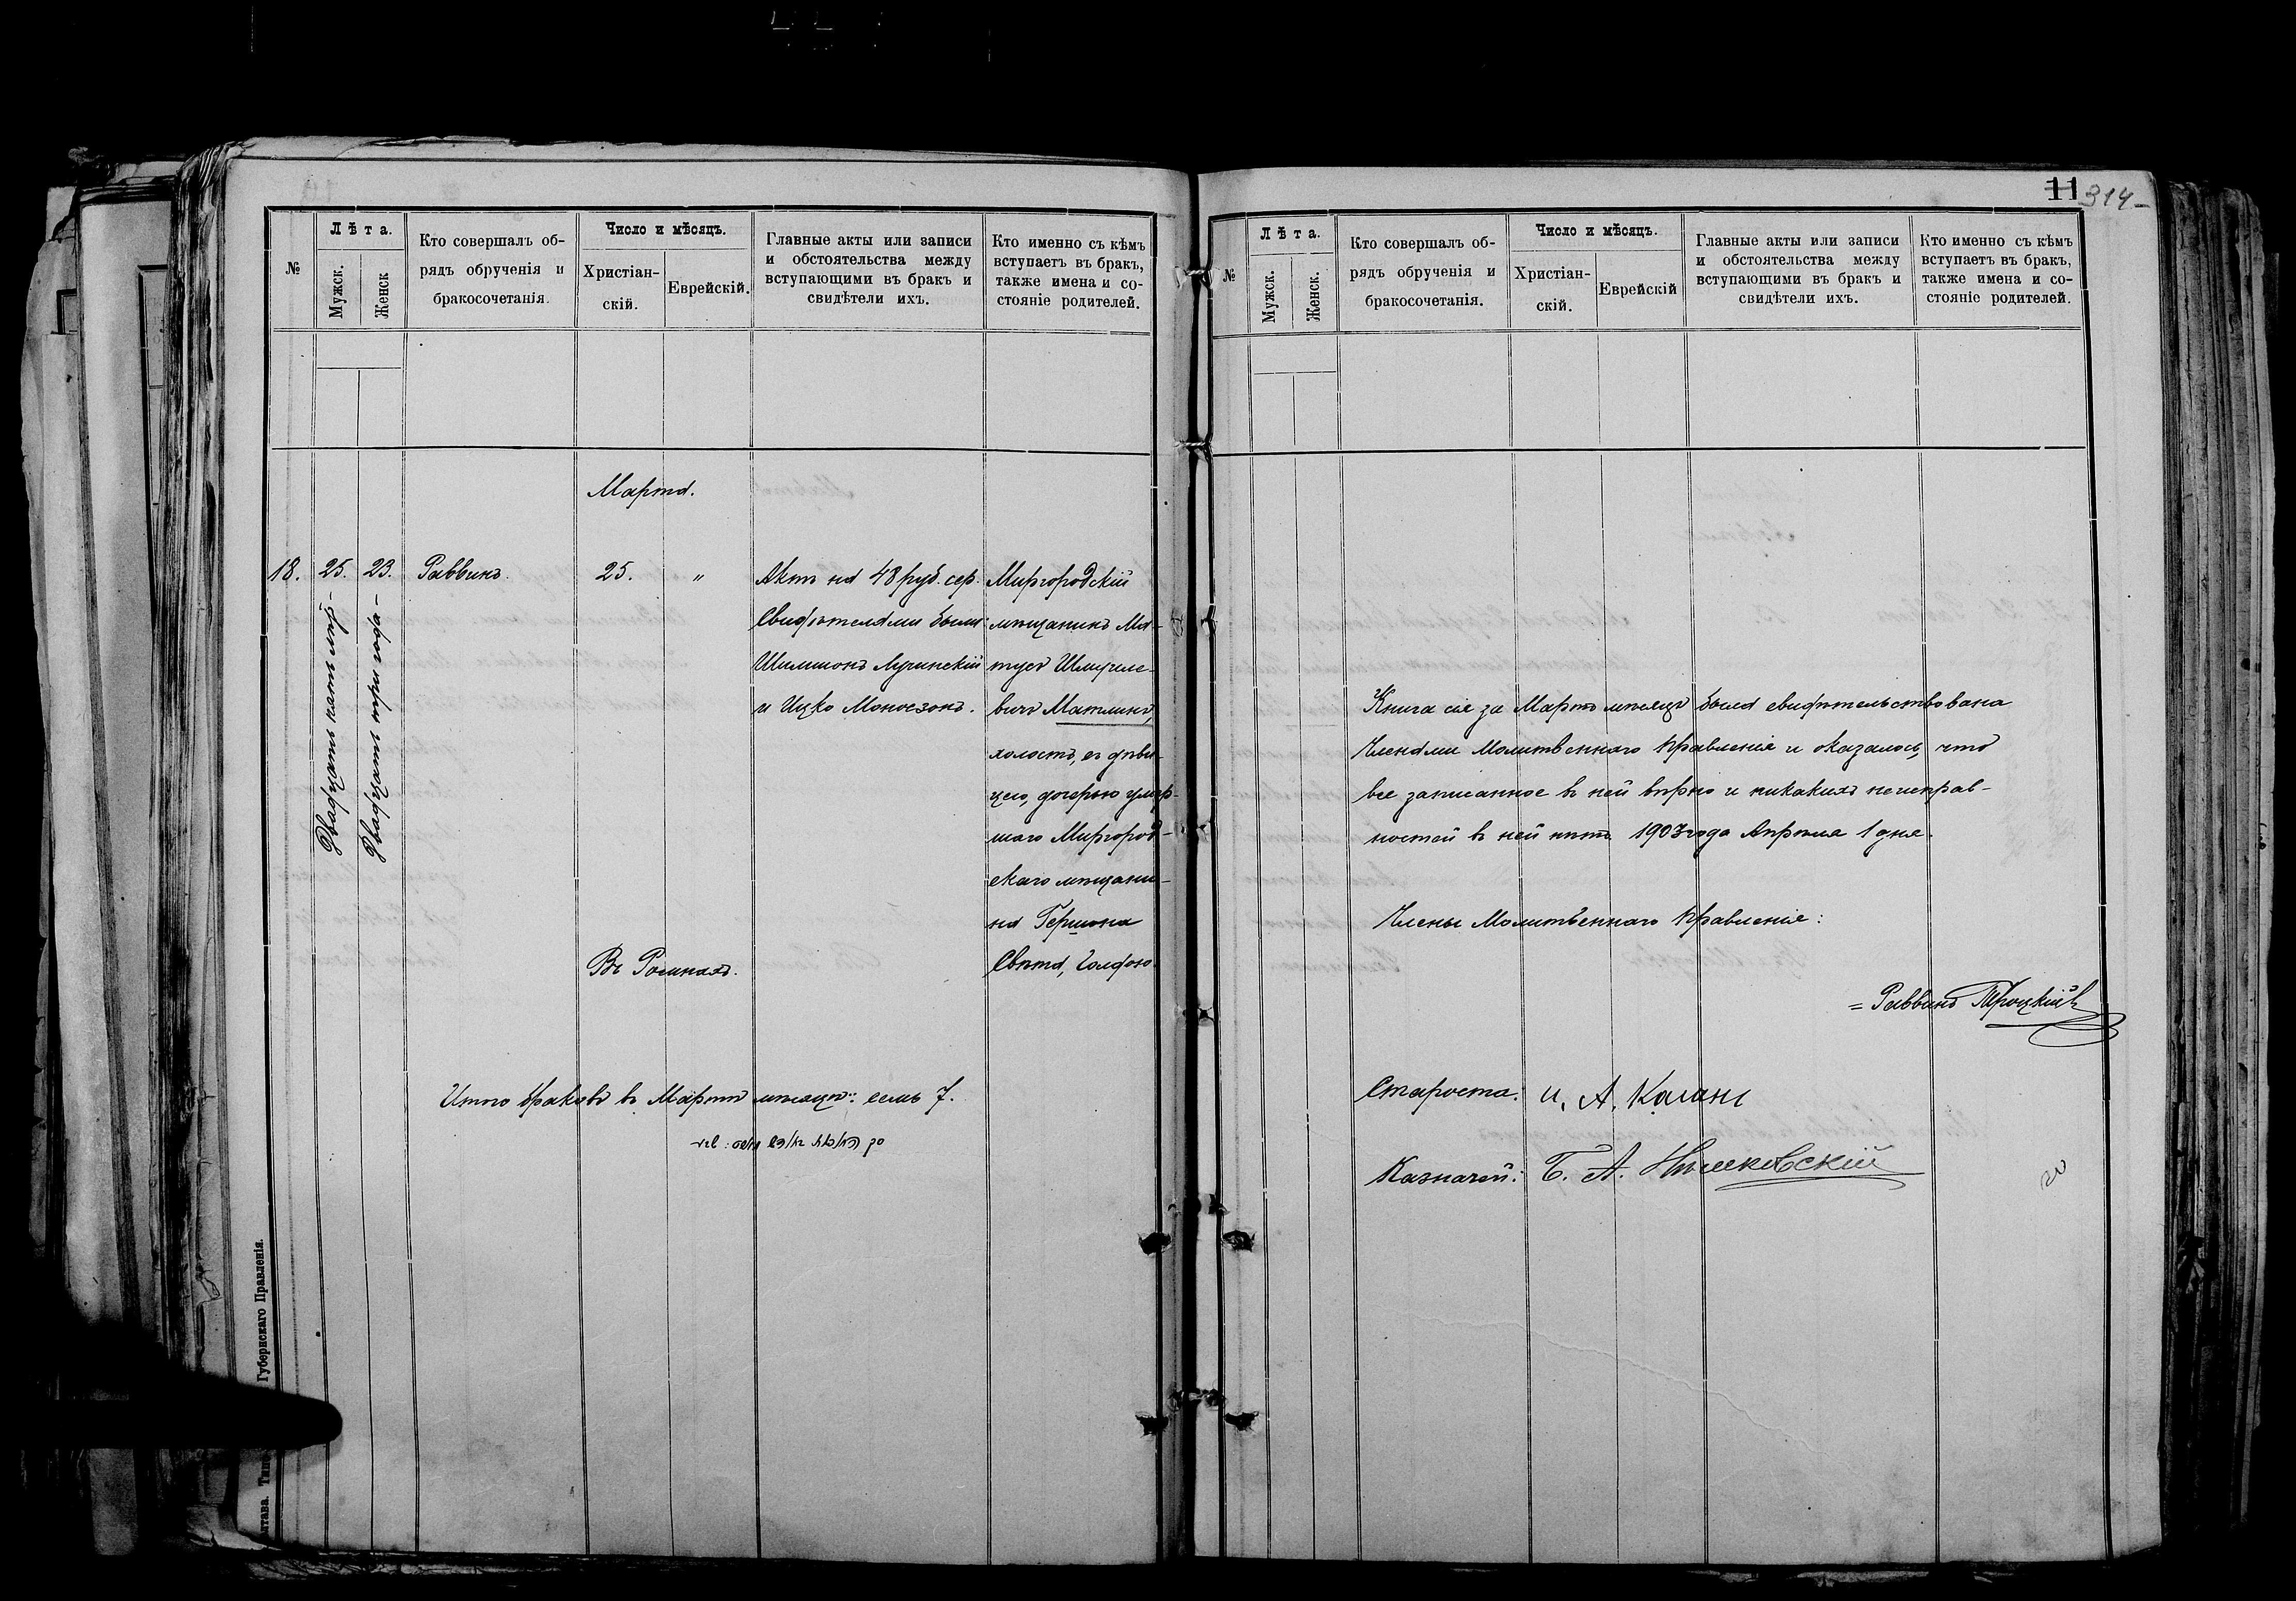 №
Лѣта.
Мужск.
Женск
Кто совершалъ об-
рядъ обрученія и
бракосочетанія.
Число и мѣсяцъ.
Христіан-
скій.
Еврейскій.
Главные акты или записи
и обстоятельства между
вступающими въ бракъ и
свидѣтели ихъ.
Кто именно съ кѣмъ
вступаетъ въ бракъ,
также имена и со-
стояніе родителей.
Марта.
18.
25.
Двадцать пять лѣтъ
23.
Двадцать три года
Раввинъ.
25.
"
Въ Ромнахъ.
Актъ на 48 руб. сер.
Свидѣтелями были:
Шимшонъ Лучинскій
и Ицко Моносзонъ.
Миргородскій
мѣщанинъ Ма-
тусъ Шмуиле-
вичъ Матлинъ,
холостъ, съ дѣви-
цею, дочерью умер-
шаго Миргород-
скаго мѣщани-
на Гершона
Свѣта, Голдою.
Итого браковъ въ Мартѣ мѣсяцѣ: семь 7.
Губернскаго Правленія.
11
314
№
Лѣта.
Мужск.
Женск.
Кто совершалъ об-
рядъ обрученія и
бракосочетанія.
Число и мѣсяцъ.
Христіан-
скій.
Еврейскій
Главные акты или записи
и обстоятельства между
вступающими въ бракъ и
свидѣтели ихъ.
Кто именно съ кѣмъ
вступаетъ въ бракъ,
также имена и со-
стояніе родителей.
Книга сія за Мартъ мѣсяцъ была свидѣтельствована
Членами Молитвеннаго Правленія и оказалось, что
все записанное въ ней вѣрно и никакихъ неисправ-
ностей въ ней нѣтъ 1903 года Апрѣля 1 дня.
Члены Молитвеннаго Правленія:
= Раввинъ Троцкій
Староста: И. А. Каганъ
Казначей: Б. А.